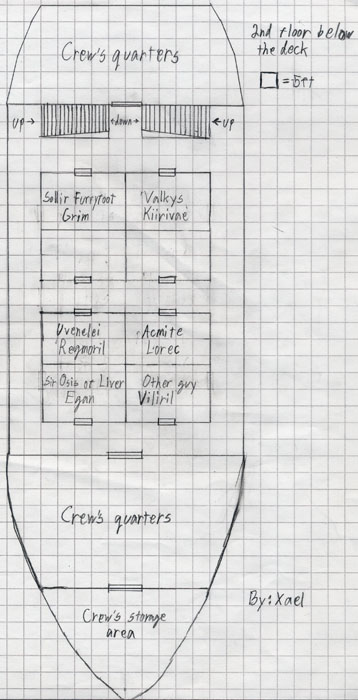 2nd floor below
the deck
Crew's quarters
□ = 5ft
up →
←down→
← up
Sollir Furryfoot
Grim
Valkys
Kiirivae
Uvenelei
Regmoril
Acmite
Lorec
Sir Osis of Liver
Egan
Other guy
Viliril
Crew's quarters
By: Xael
Crew's storage
area